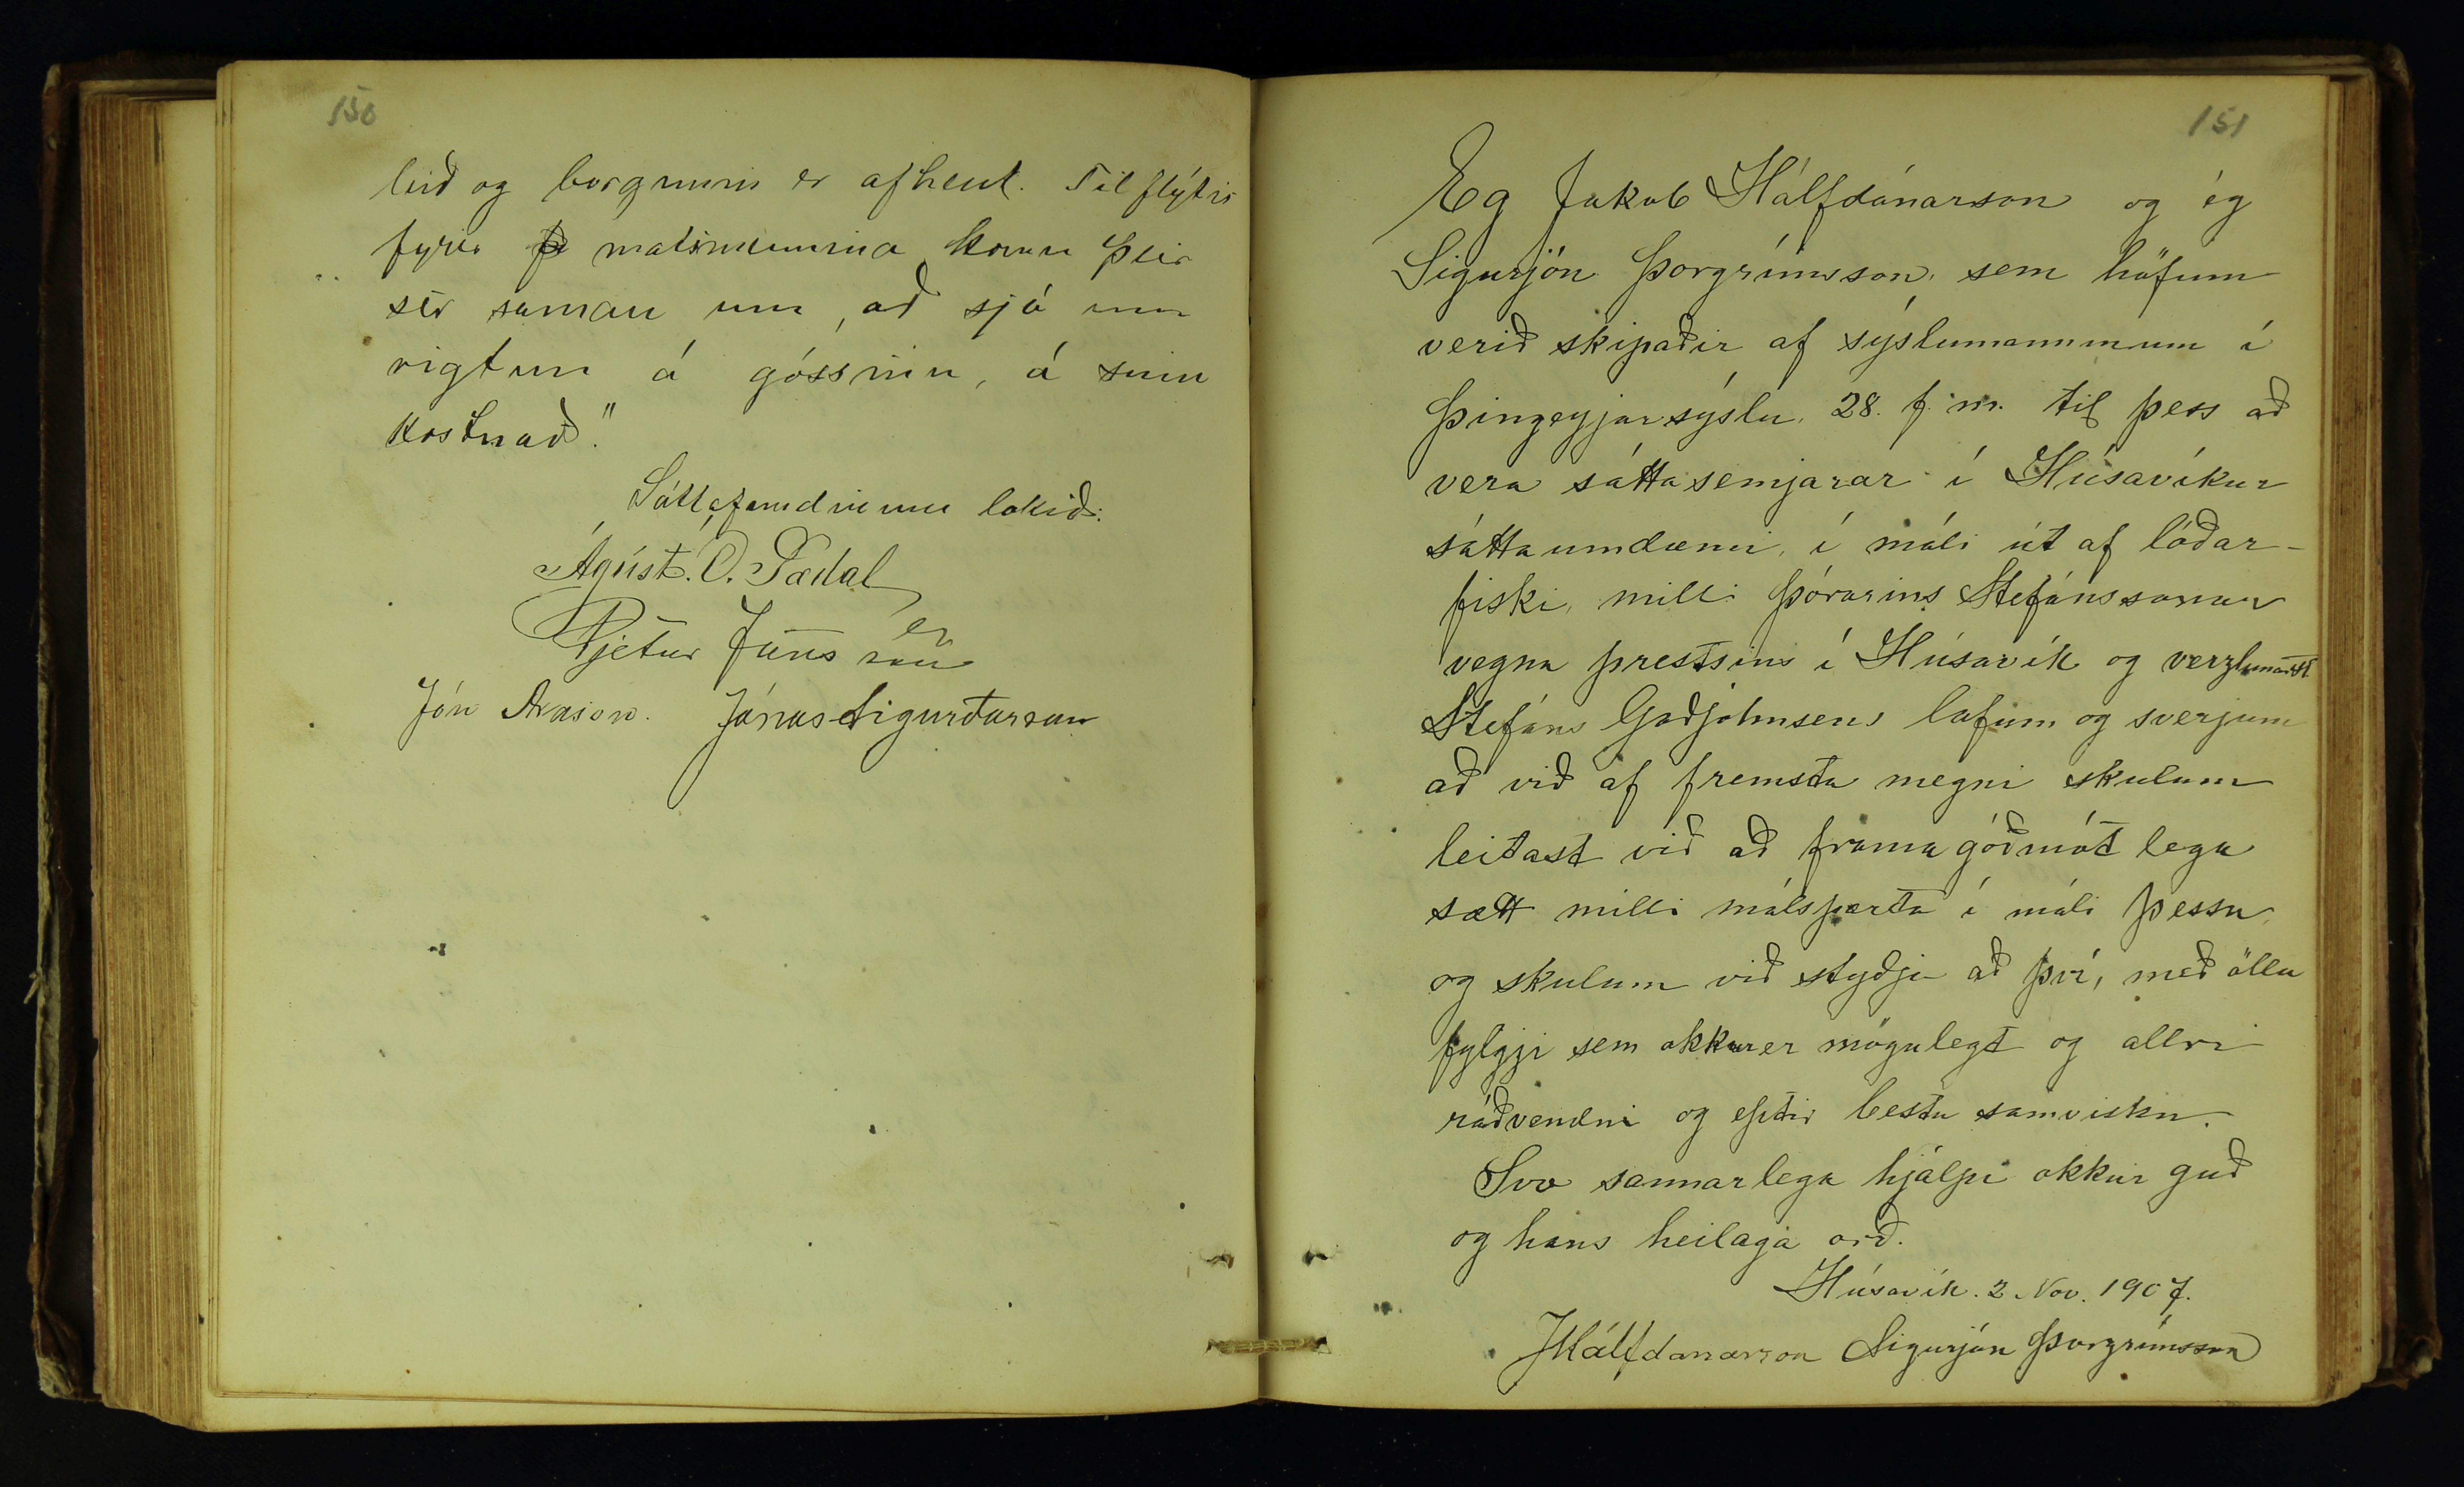 150
leið og borgunin er afhent. Til flýtis
fyrir matsmennina koma þeir
sér saman um, að sjá um
vigtun á góssinu, á sinn
kostnað."
Sáttafundinum lokið.
Ágúst. Ó.
Pjetur Jónsson
Jón Arason. Jónas Sigurðarson
151
Eg Jakob Hálfdánarson og ég
Sigurjón Þorgrímsson, sem höfum
verið skipaðir af sýslumanninum í
Þingeyjarsýslu, 28. f. m. til þess að
vera sáttasemjarar í Húsavíkur
sáttaumdæmi, í máli út af lóðar-
fiski, milli Þórarins Stefánssonar
vegna prestsins í Húsavík og verzlunarstj
Stefáns Guðjohnsens lofum og sverjum
að við af fremsta megni skulum
leitast við að framagóðmótlega
sætt milli málsparta í máli þessu,
og skulum við styðja að því, með öllu
fylgji sem okkur er mögulegt og allri
ráðvendni og eptir bestu samvisku.
Svo sannarlega hjálpi okkur guð
og hans heilaga orð.
Húsavík. 2 Nov. 1907.
JHálfdanarson Sigurjón Þorgrímsson